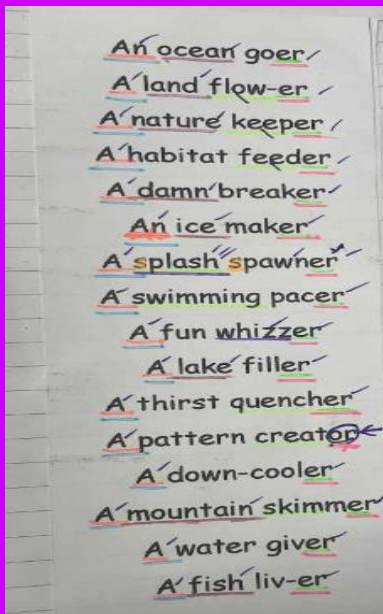 An ocean goer
A land flow-er
A nature keeper
A habitat feeder
A damn breaker
An ice maker
A splash spawner
A swimming pacer
A fun whizzer
A lake filler
A thirst quencher
A pattern creator
A down-cooler
A mountain skimmer
A water giver
A fish liv-er